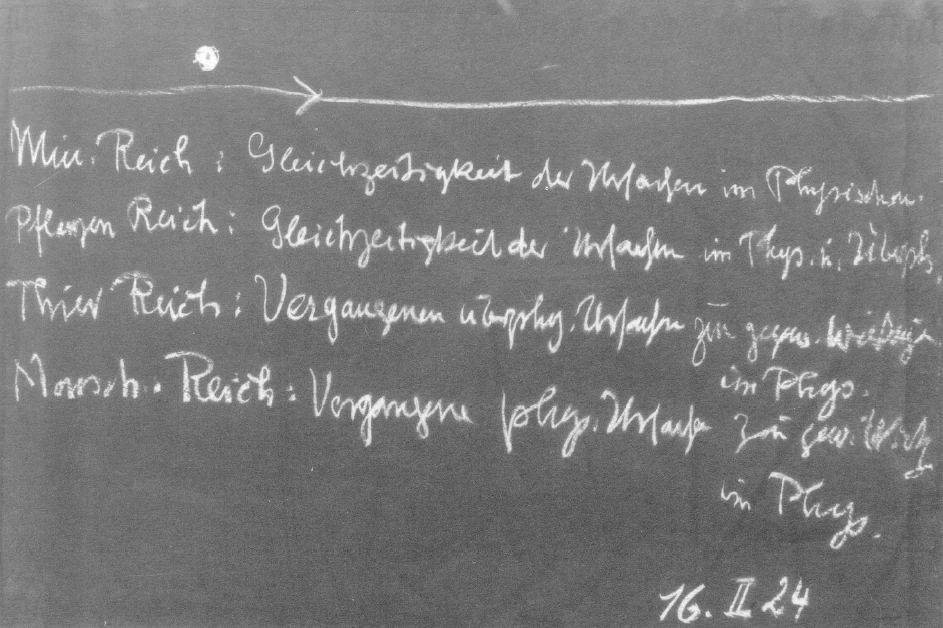 Min. Reich : Gleichzeitigkeit der Ursachen im Physischen.
Pflanzen Reich : Gleichzeitigkeit der Ursachen im Phys. u. Überph.
Thier Reich : Vergangenen überphy. Ursachen zu gegenw.
im Phys.
Mensch. Reich : Vergangene phys. Ursachen zu gew. Wirk
im Phys.
16. II 24